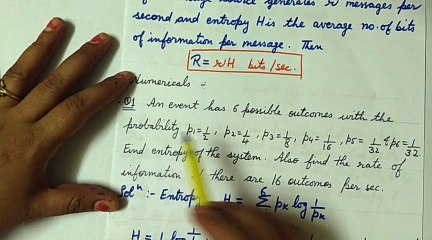 source generates r messages per
second and entropy H is the average no. of bits
of information per message. Then
R = rH bits/sec.
Numericals :-
Q1 An event has 6 possible outcomes with the
probability p₁=1/2, p₂=1/4, p₃=1/8, p₄=1/16, p₅=1/32 & p₆=1/32.
Find entropy of the system. Also find the rate of
information there are 16 outcomes per sec.
Solⁿ :- Entropy H = 6 Σ pₖ log 1/pₖ
H = 1 log 1